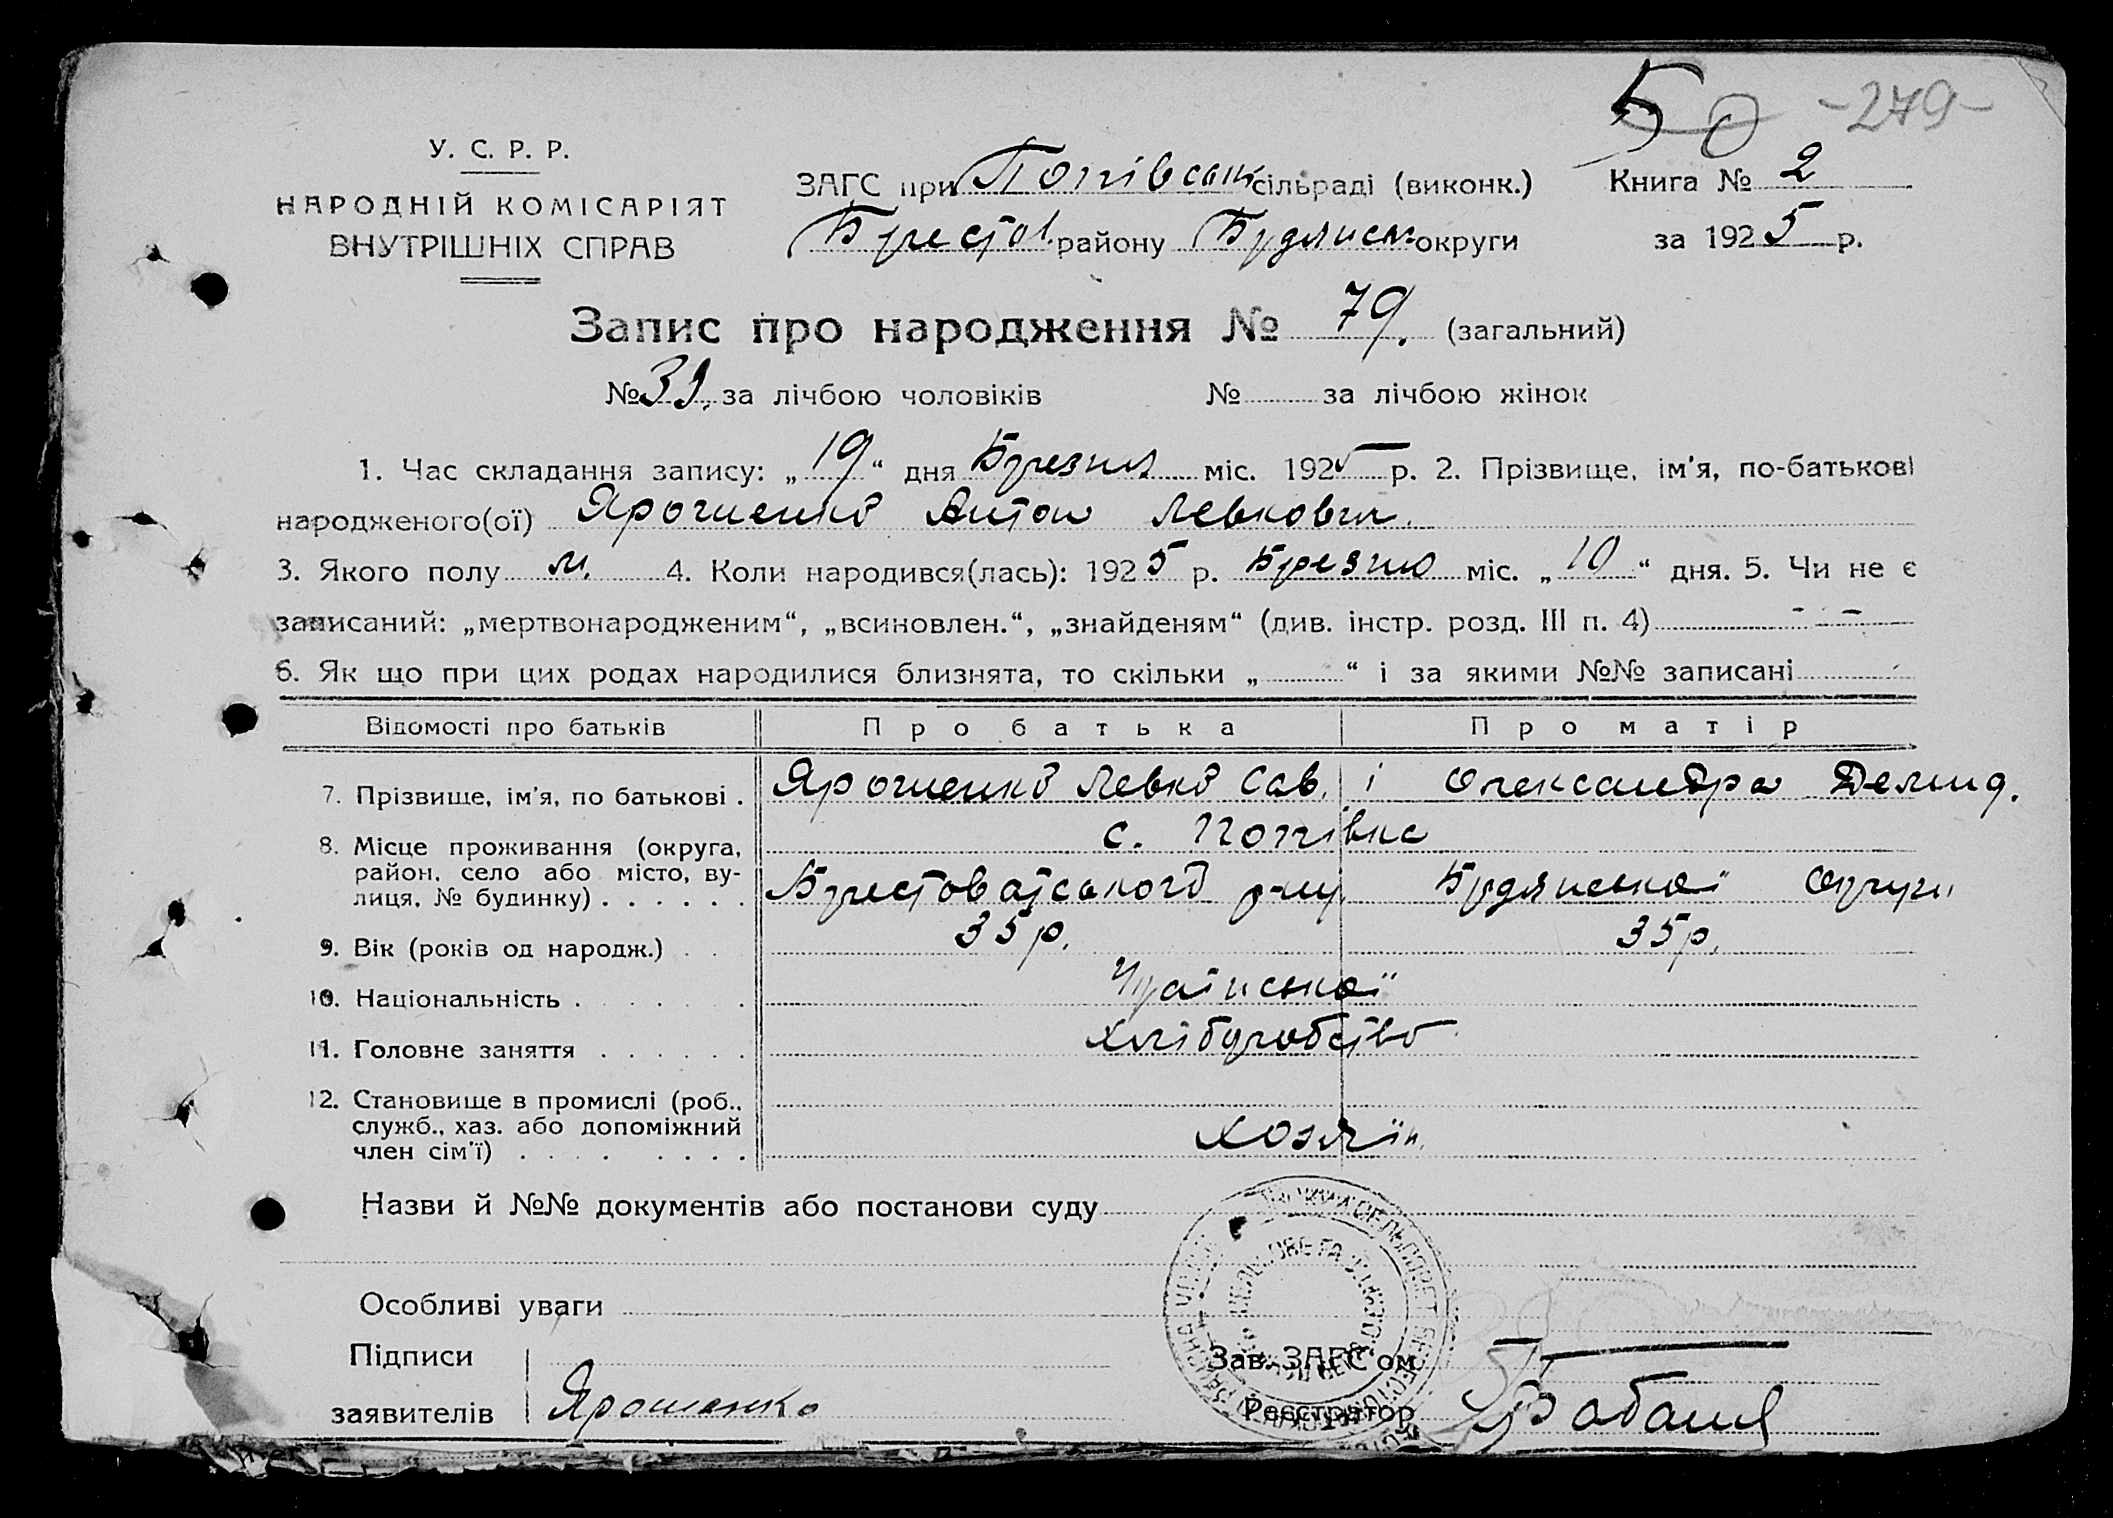 50 -279-
У. С. Р. Р.
НАРОДНІЙ КОМІСАРІЯТ
ВНУТРІШНІХ СПРАВ
ЗАГС при Попівськ сільраді (виконк.) Книга № 2
Берестов. району Бердянськ округи за 1925 р.
Запис про народження № 79. (загальний)
№ 39. за лічбою чоловіків № за лічбою жінок
1. Час складання запису: „19“ дня Березня міс. 1925 р. 2. Прізвище, ім'я, по-батькові
народженого(ої) Ярошенко Антон Левкович.
3. Якого полу м. 4. Коли народився(лась): 1925 р. Березню міс. „10“ дня. 5. Чи не є
записаний: „мертвонародженим“, „всиновлен.“, „знайденям“ (див. інстр. розд. III п. 4) - - -
6. Як що при цих родах народилися близнята, то скільки „ “ і за якими №№ записані
Відомості про батьків Про батька Про матір
7. Прізвище, ім'я, по батькові . Ярошенко Левко Сав. і Олександра Демид.
8. Місце проживання (округа, район, село або місто, ву-
лиця, № будинку) . . . . . . с. Попівка
Берестоватського р-ну Бердянської округи
9. Вік (років од народж.) . . 35 р. 35 р.
10. Національність . . . . . . Української
11. Головне заняття . . . . . . хліборобство
12. Становище в промислі (роб.,
служб., хаз. або допоміжний
член сім'ї) . . . . . . . . хозяїн
Назви й №№ документів або постанови суду
Особливі уваги
Підписи Зав. ЗАГС'ом
заявителів Ярошенко Реєстратор